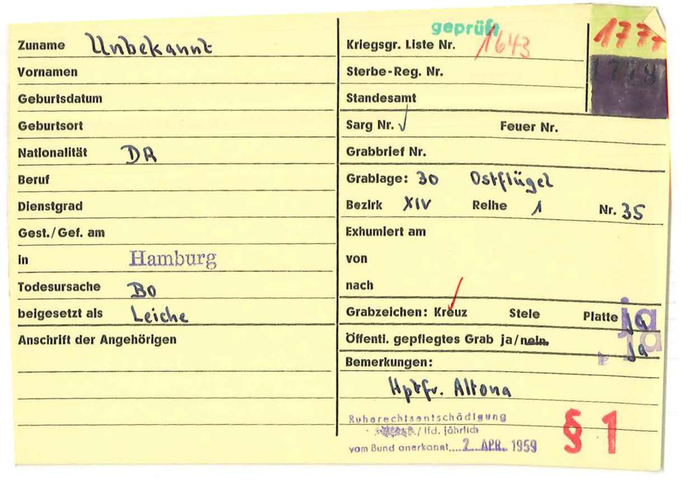 Zuname Unbekannt
Vornamen
Geburtsdatum
Geburtsort
Nationalität DR
Beruf
Dienstgrad
Gest./Gef. am
in Hamburg
Todesursache Bo
beigesetzt als Leiche
Anschrift der Angehörigen
geprüft
Kriegsgr. Liste Nr. 1643
Sterbe-Reg. Nr.
Standesamt
Sarg Nr. Feuer Nr.
Grabbrief Nr.
Grablage: 30 Ostflügel
Bezirk XIV Reihe 1 Nr. 35
Exhumiert am
von
nach
Grabzeichen: Kreuz Stele Platte ja
Öffentl. gepflegtes Grab ja/nein. ja
Bemerkungen:
Hptfr. Altona
Ruherechtsentschädigung
/ lfd. jährlich
vom Bund anerkannt 2. APR. 1959
§ 1